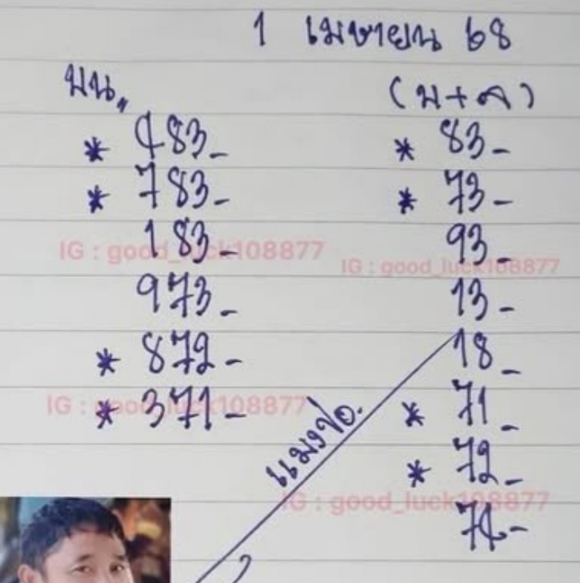 1 เมษายน 68
บน"
(บ+ล)
* 483-
* 783-
183-
973-
* 872-
* 371-
* 83-
* 73-
93-
13-
18-
* 71-
* 72-
74-
IG : good_luck108877
IG : good_luck108877
IG : good_luck108877
IG : good_luck108877